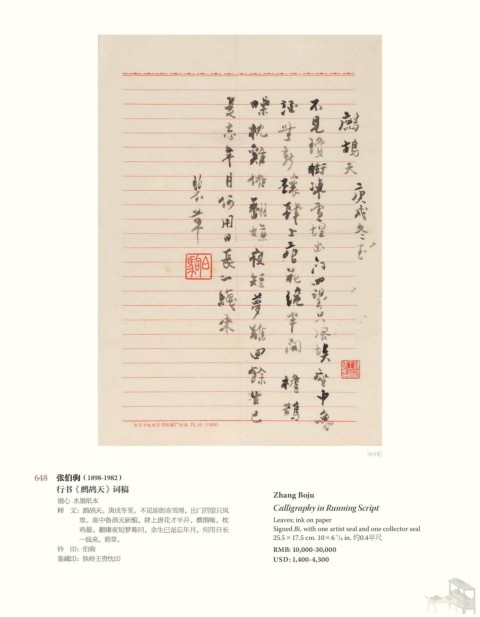 鷓鴣天 庚戌冬至
不見瓊街凍雪埋出門四望只風埃座中魯
酒無新釀肆上唐花纔半開 檐鵲
噪枕雞催翻嫌夜短夢難回餘生已
是忘年月何用日長一綫來
碧草
伯駒
[648]
648 张伯驹（1898-1982）
行书《鹧鸪天》词稿
镜心 水墨纸本
释 文：鹧鸪天。庚戌冬至。不见琼街冻雪埋，出门四望只风
埃。座中鲁酒无新酿，肆上唐花才半开。檐鹊噪，枕
鸡催。翻嫌夜短梦难回。余生已是忘年月，何用日长
一线来。碧草。
钤 印：伯驹
鉴藏印：铁岭王贵忱印
Zhang Boju
Calligraphy in Running Script
Leaves; ink on paper
Signed Bi, with one artist seal and one collector seal
25.5 × 17.5 cm. 10 × 6 7/8 in. 约0.4平尺
RMB: 10,000-30,000
USD: 1,400-4,300